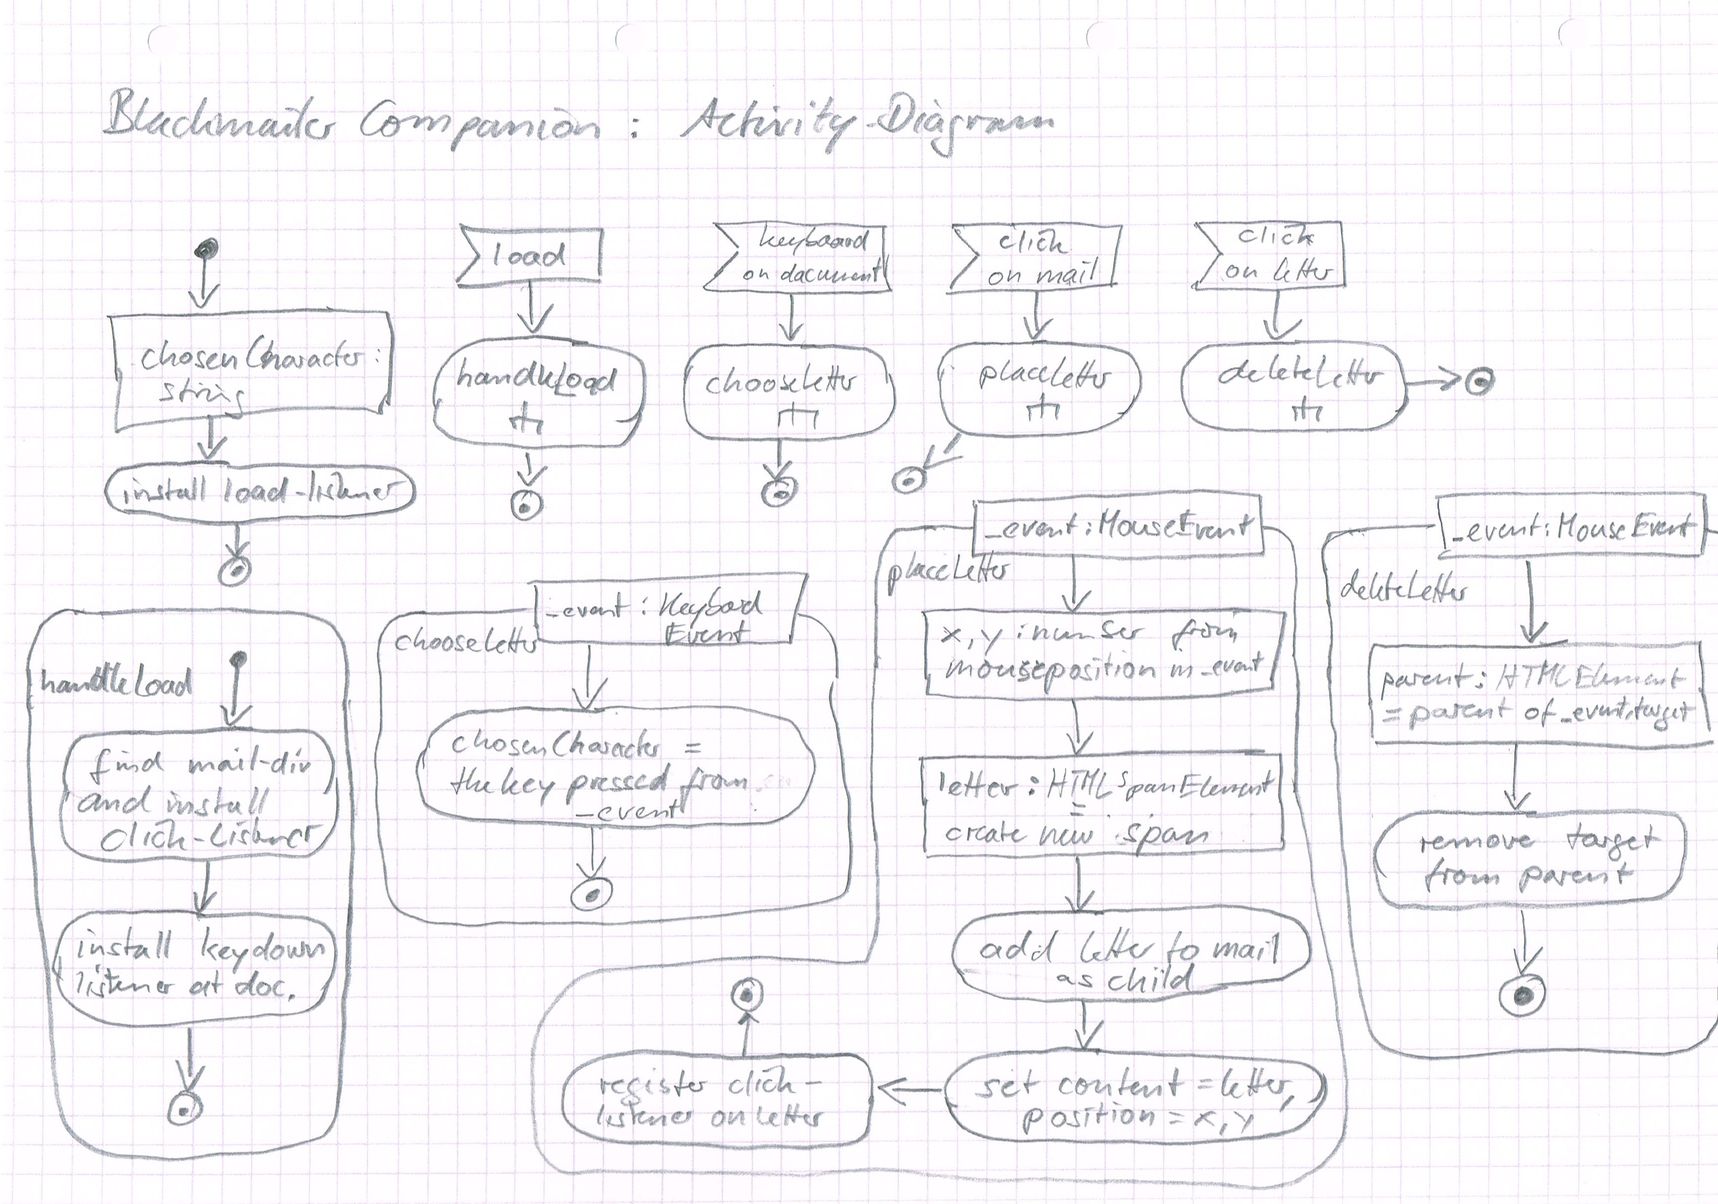 Blackmailer Companion : Activity-Diagram
chosenCharacter :
string
install load-listener
load
handleLoad
keyboard
on document
chooseLetter
click
on mail
placeLetter
click
on letter
deleteLetter
handleLoad
find mail-div
and install
click-listener
install keydown
listener at doc.
chooseLetter
_event : Keyboard
Event
chosenCharacter =
the key pressed from
_event
placeLetter
_event : MouseEvent
x, y : number from
mouseposition in _event
letter : HTMLSpanElement
=
create new span
add letter to mail
as child
set content = letter,
position = x, y
register click-
listener on letter
deleteLetter
_event : MouseEvent
parent : HTMLElement
= parent of _event.target
remove target
from parent